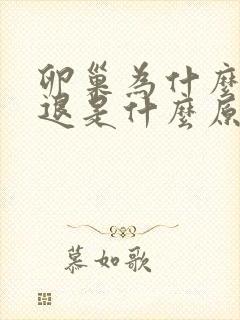 卵巢為什麼
退是什麼原
慕如歌